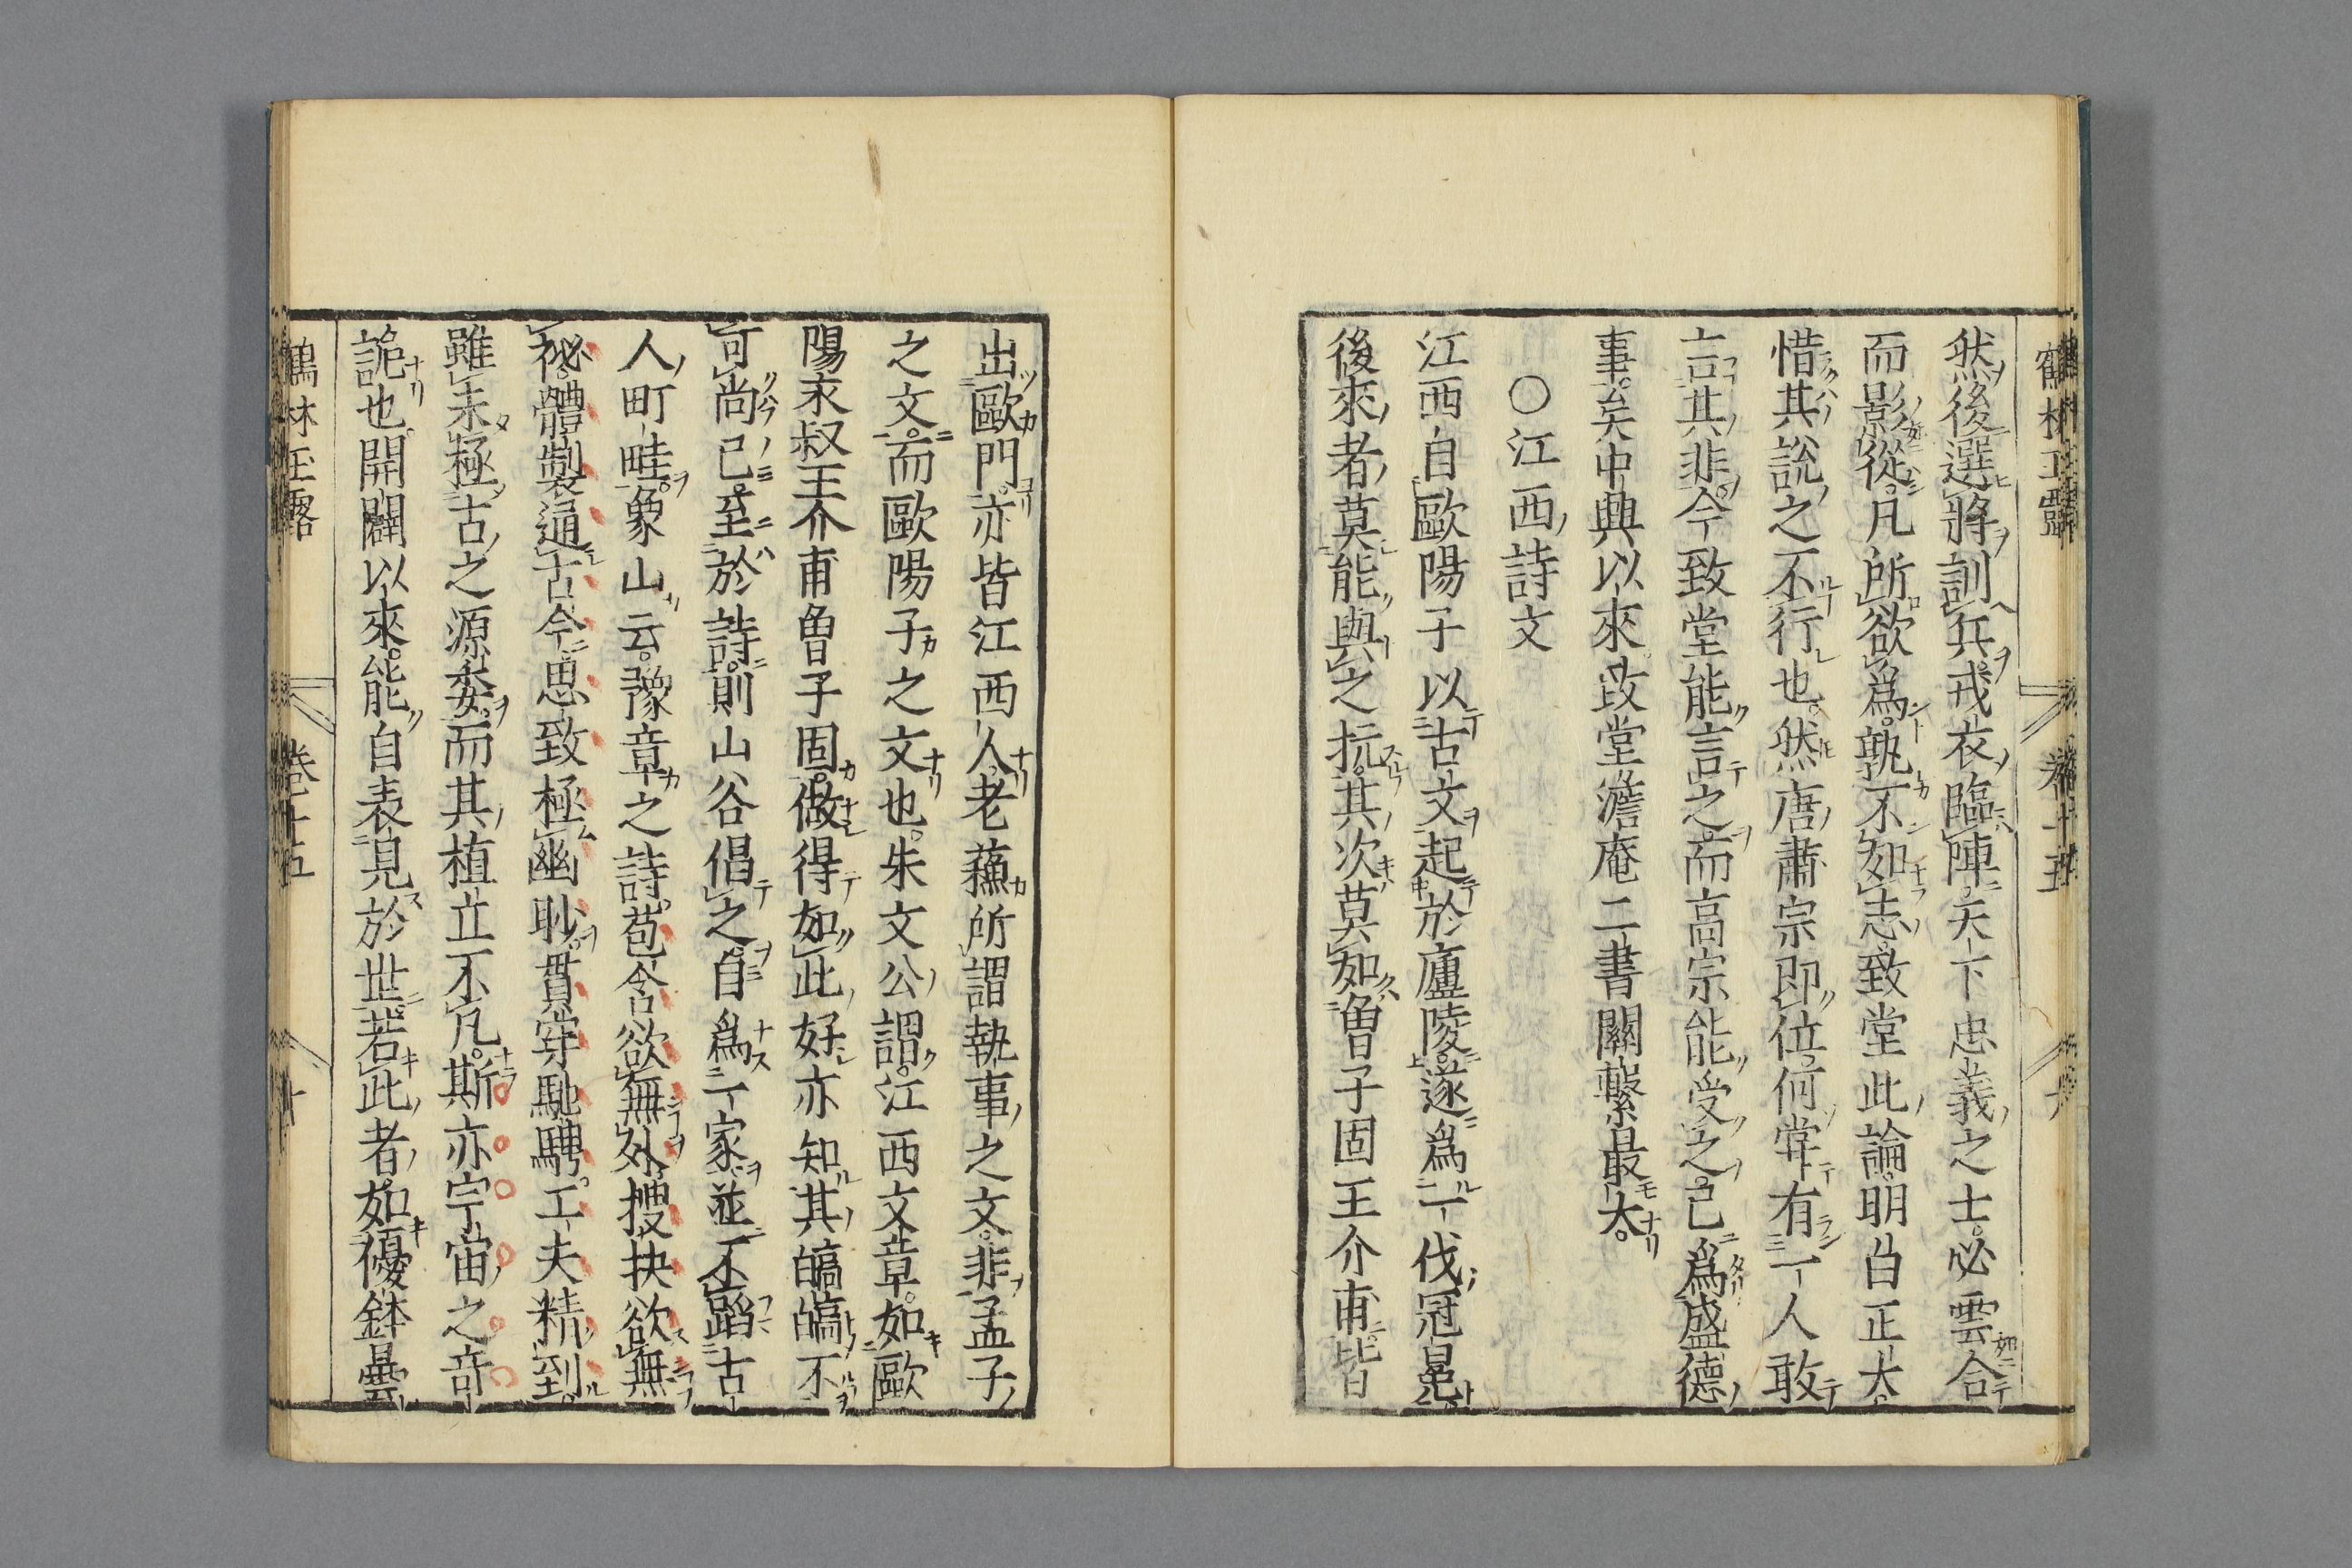 鶴林玉露 卷十五
然後選將訓兵戎衣臨陣天下忠義之士必雲合
而影從凡所欲爲孰不如志致堂此論明白正大
惜其說之不行也然唐肅宗即位何甞有一人敢
言其非今致堂能言之而高宗能受之已爲盛德
事矣中興以來致堂澹庵二書關繫最大
〇江西詩文
江西自歐陽子以古文起於廬陵遂爲一代冠冕
後來者莫能與之抗其次莫如曽子固王介甫皆
出歐門亦皆江西人老蘓所謂執事之文非孟子
之文而歐陽子之文也朱文公謂江西文章如歐
陽永叔王介甫曽子固做得如此好亦知其皜皜不
可尚已至於詩則山谷倡之自爲一家並不蹈古
人町畦象山云豫章之詩苞含欲無外搜抉欲無
祕體製通古今思致極幽眇貫穿馳騁工夫精到
雖未極古之源委而其植立不凡斯亦宇宙之竒
詭也開闢以來能自表見於世若此者如優鉢曇
鶴林玉露 卷十五 十